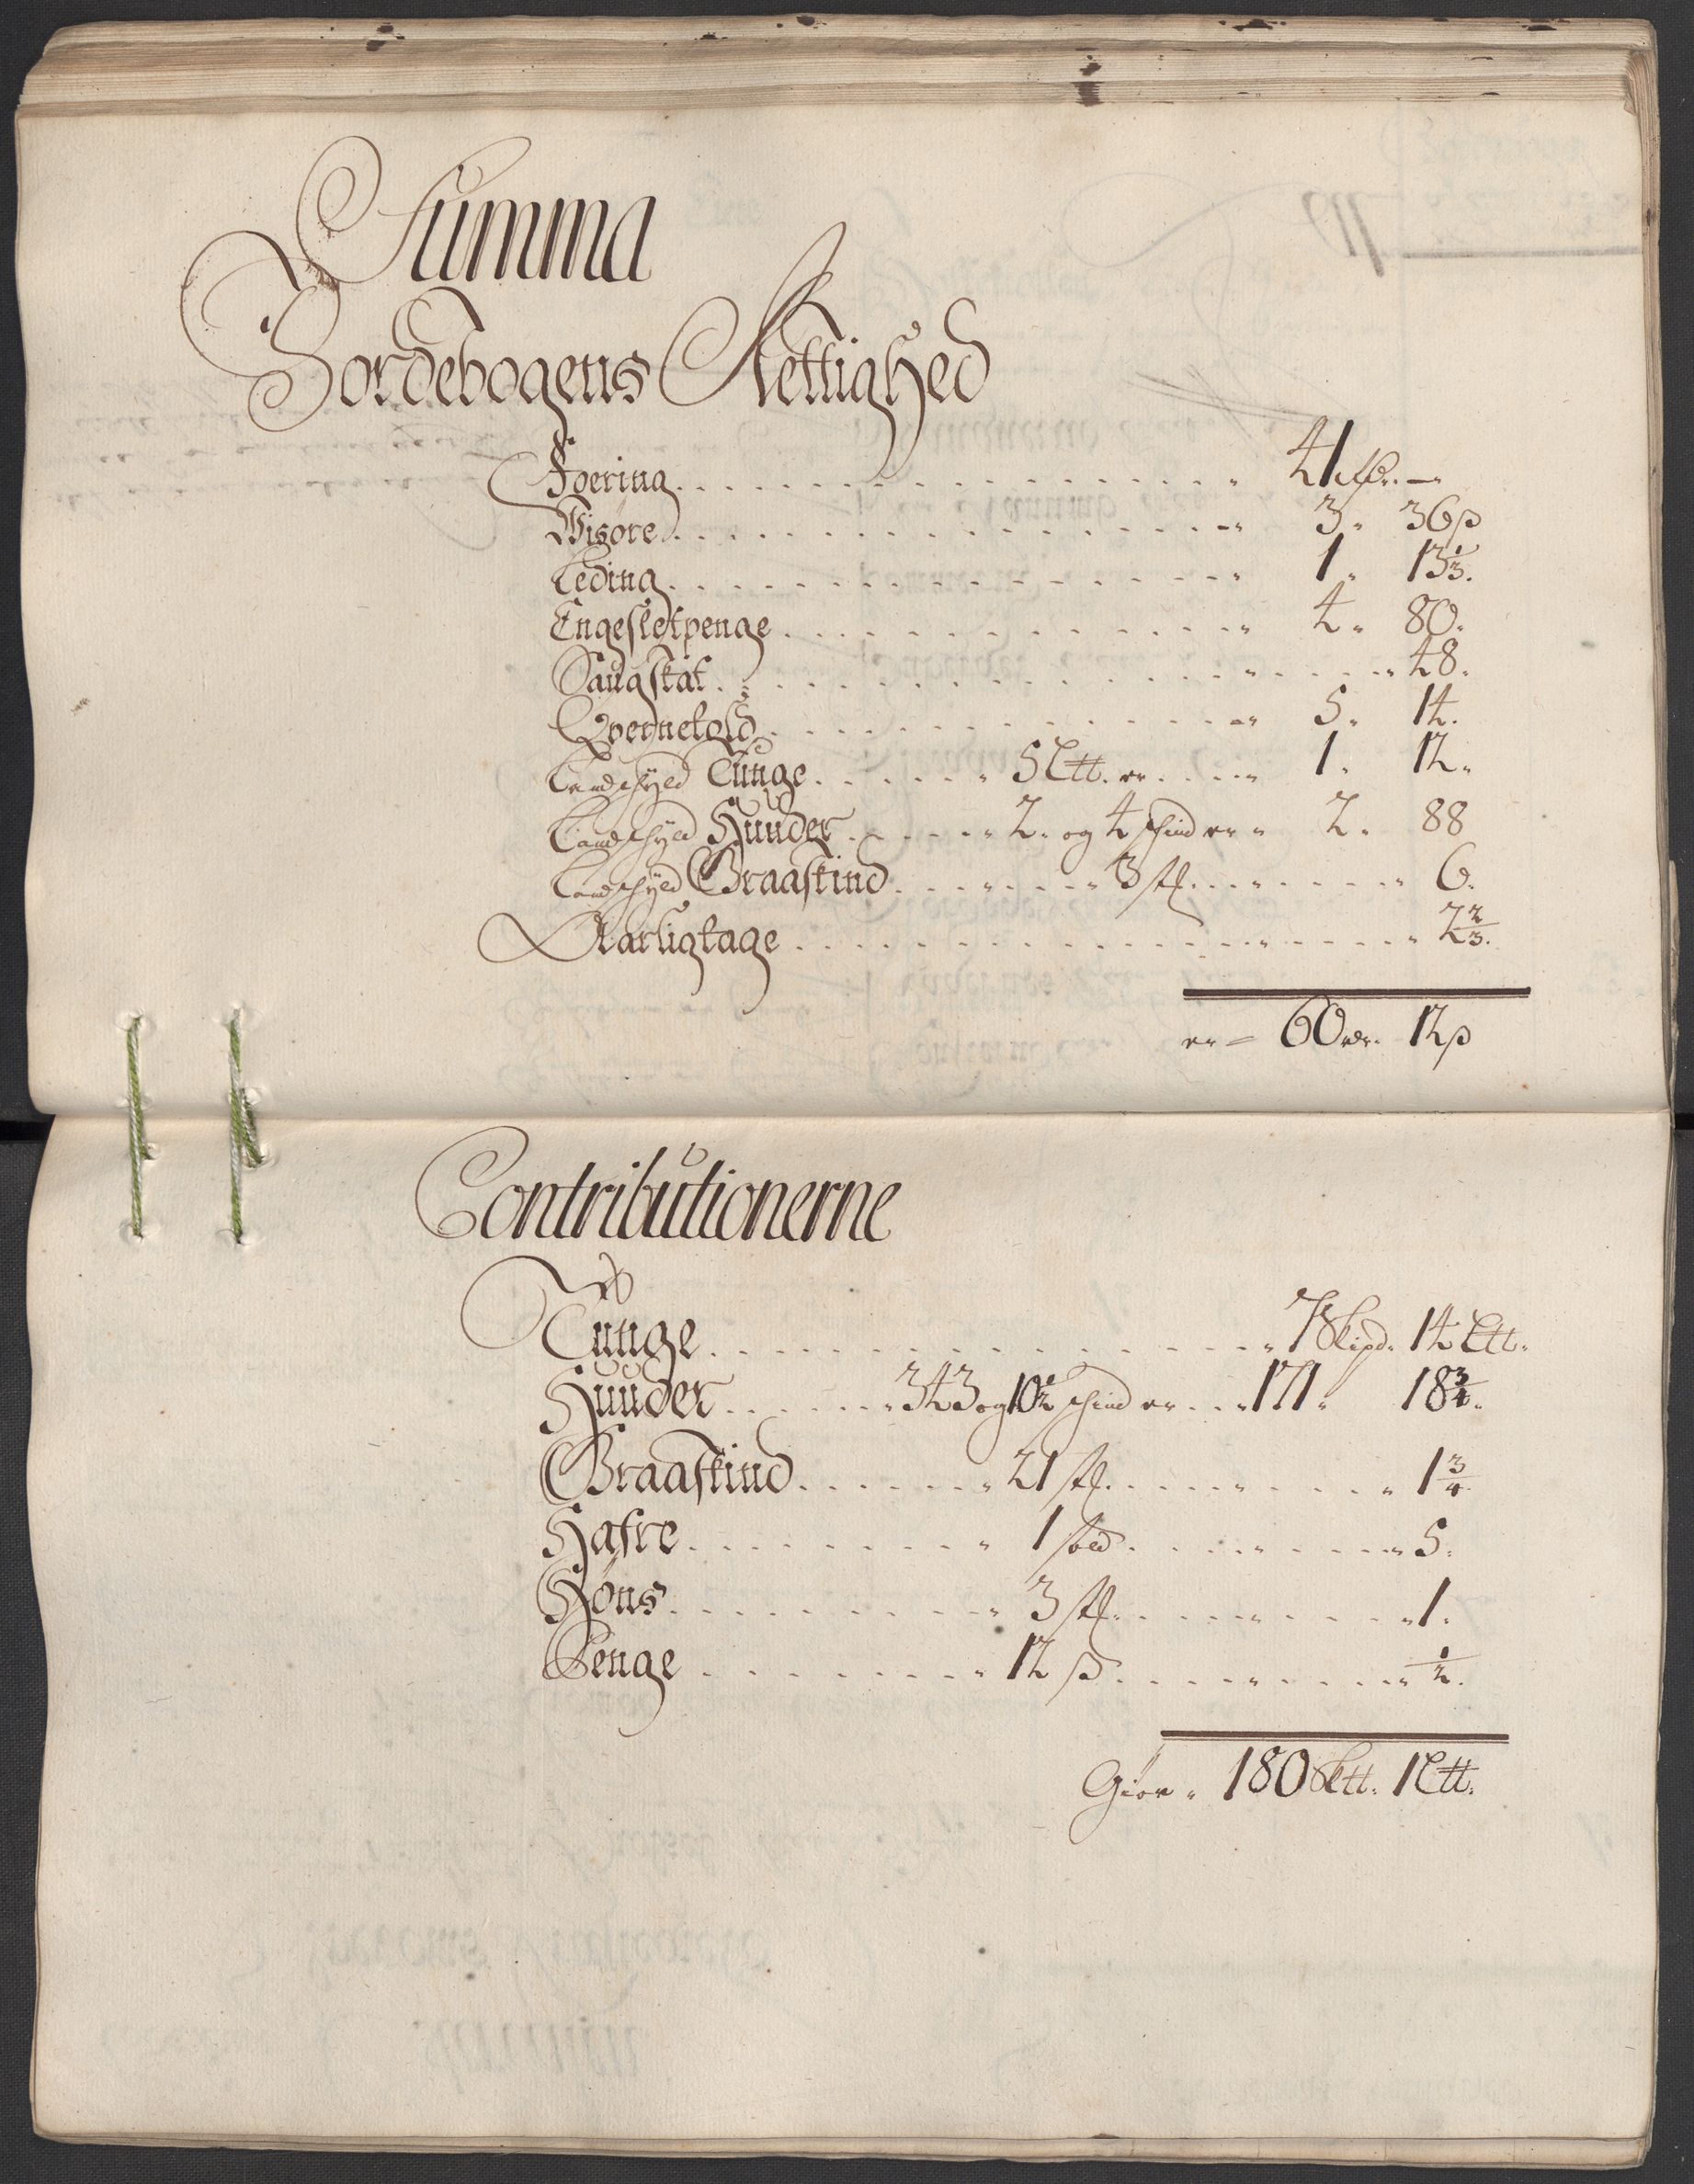 Summa
Jordebogens Rettighed
Foering . . . . 41 rdr. —
Wisøre . . . . 3 " 36 ß
Leding . . . . 1 " 13 1/3.
Engesletpenge . . . . 4 " 80.
Saugskat . . . . 48.
Qvernetold . . . . 5 " 14.
Landschyld Tunge . . . . 5 Ltt. er . . . . 1 " 12.
Landschyld Huuder . . . . 2. og 4 schind er " 2 " 88
Landschyld Graaskind . . . . 3 stk. . . . . 6.
Aarligtage . . . . 2 2/3.
er = 60 rdr. 12 ß
Contributionerne
Tunge . . . . 7 Skipd. 14 Ltt.
Huuder . . . . 343 og 10 1/2 schind er . . . 171 " 18 3/4.
Graaskind . . . . 21 stk. . . . . 1 3/4.
Hafre . . . . 1 sold . . . . 5.
Høns . . . . 3 stk. . . . . 1.
Penge . . . . 12 ß . . . . 1/2.
Giør " 180 Sktt. 1 Ltt.